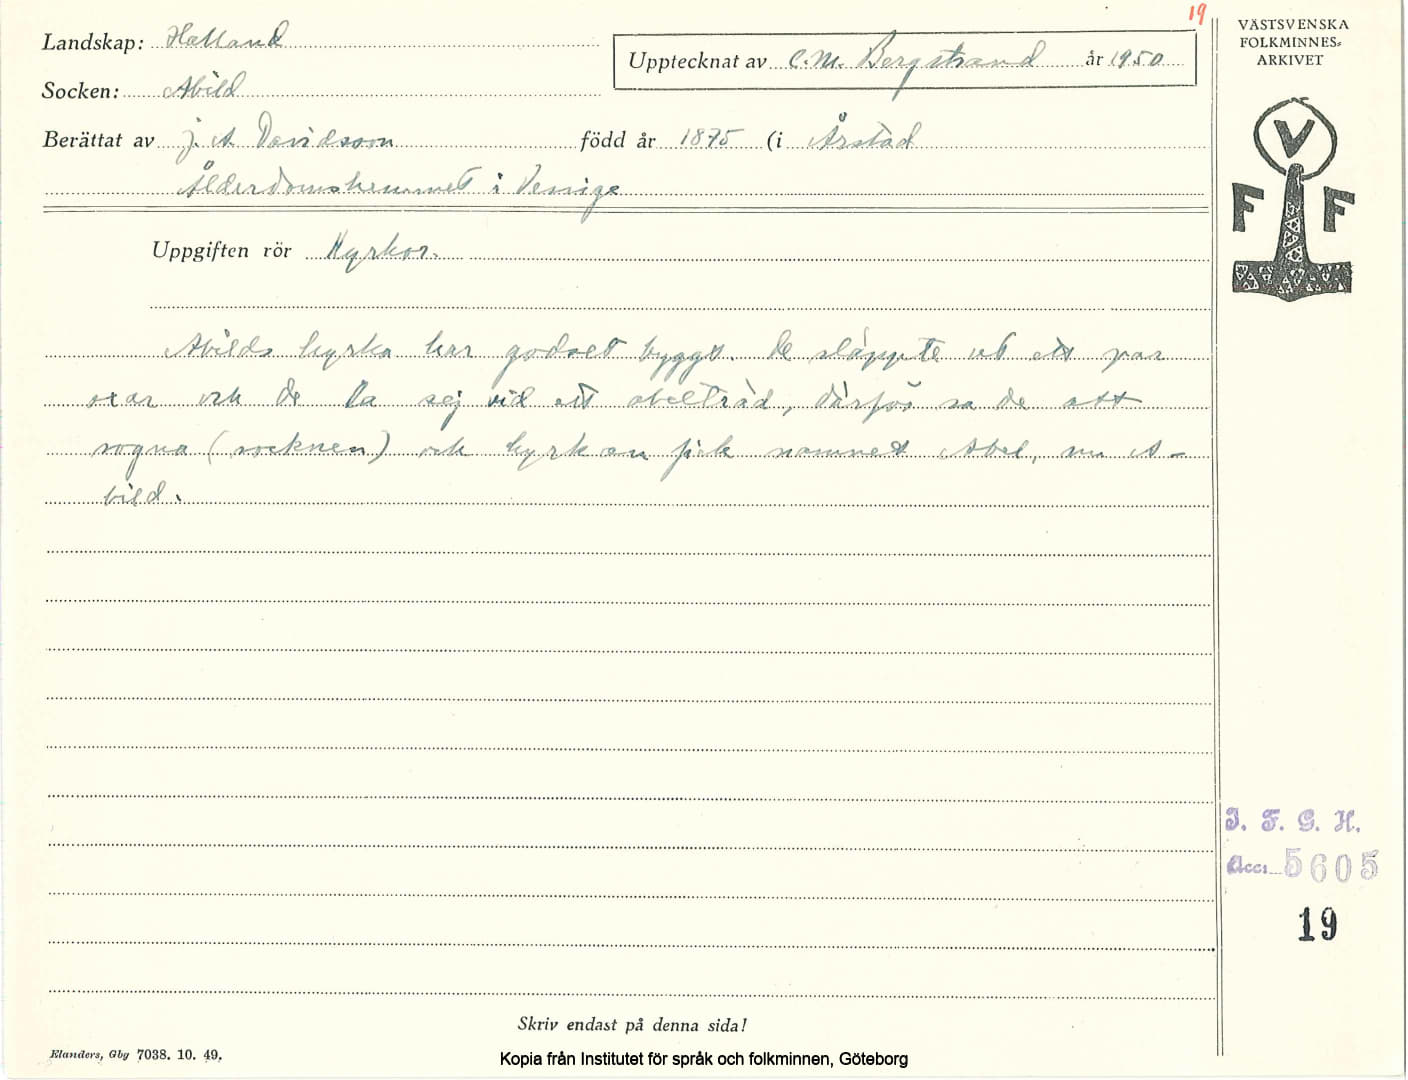 19
Landskap: Halland
Upptecknat av C.M. Bergstrand år 1950
Socken: Abild
Berättat av J. A. Davidsson född år 1875 (i Årstad
Ålderdomshemmet i Vessige
Uppgiften rör Kyrkor.
Abilds kyrka har godset byggt. De släppte ut ett par
oxar och de la sej vid ett abelträd, därför sa de att
sogna (socknen) och kyrkan fick namnet Abel, nu A-
bild.
Skriv endast på denna sida!
Elanders, Gbg 7038. 10. 49.
Kopia från Institutet för språk och folkminnen, Göteborg
VÄSTSVENSKA
FOLKMINNES-
ARKIVET
V
F F
I. F. G. H.
Acc: 5605
19